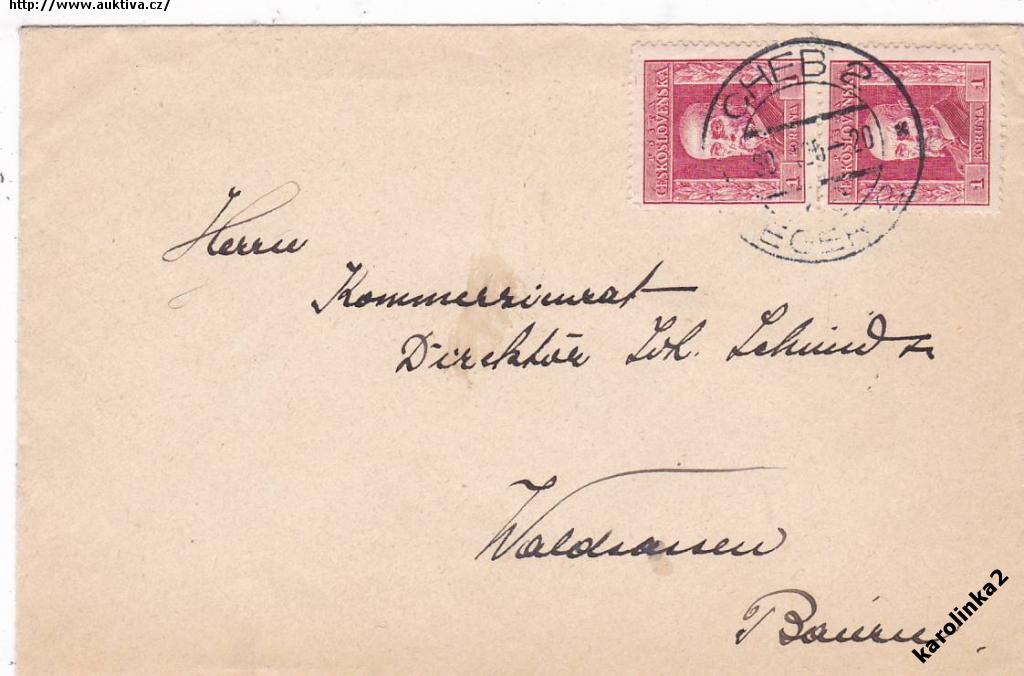 http://www.auktiva.cz/
POŠTA
ČESKOSLOVENSKA
1 KORUNA 1
POŠTA
ČESKOSLOVENSKA
1 KORUNA 1
CHEB 2
-20
EGER 2
Herrn
Kommerzienrat
Direktör Joh. Schmid
Waldsassen
Baiern
karolinka2